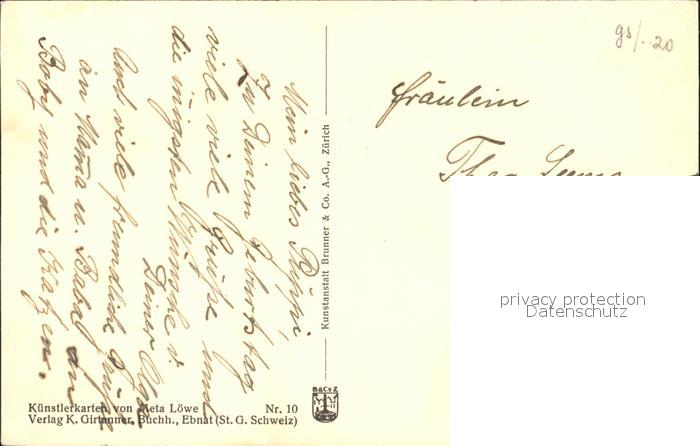 Mein liebes Puppi,
Zu Deinem Geburtstag
viele viele Grüße und
die innigsten Wünsche v.
Deiner Olga
Auch viele freundliche Grüße
an Mama u. Papa, an
Boby und die Katzen.
Fräulein
gs/. 20
privacy protection
Datenschutz
Kunstanstalt Brunner & Co. A.-G., Zürich
B&C°Z
Künstlerkarten von Meta Löwe Nr. 10
Verlag K. Girtanner, Buchh., Ebnat (St. G. Schweiz)